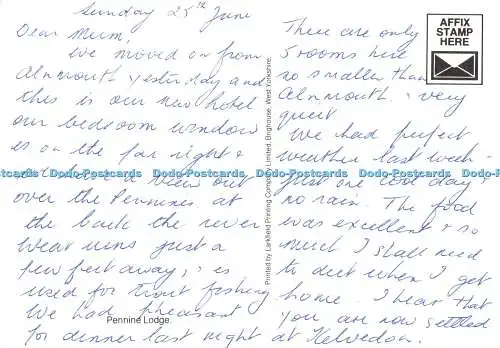 Sunday 25th June
Dear Mum,
We moved on from
Alnmouth yesterday and
this is our new hotel
our bedroom window
is on the far right &
had a view out
over the Pennines at
the back the river
Wear runs just a
few feet away, & is
used for trout fishing
We had pheasant
for dinner last night
Pennine Lodge.
Printed by Larkfield Printing Company Limited, Brighouse, West Yorkshire.
AFFIX
STAMP
HERE
There are only
5 rooms here
so smaller than
Alnmouth & very
quiet
We had perfect
weather last week -
just one cool day &
no rain. The food
was excellent & so
much I shall need
to diet when I get
home. I hear that
you are now settled
at Kelvedon.
Dodo-Postcards Dodo-Postcards Dodo-Postcards Dodo-Postcards Dodo-Postcards Dodo-Postcards